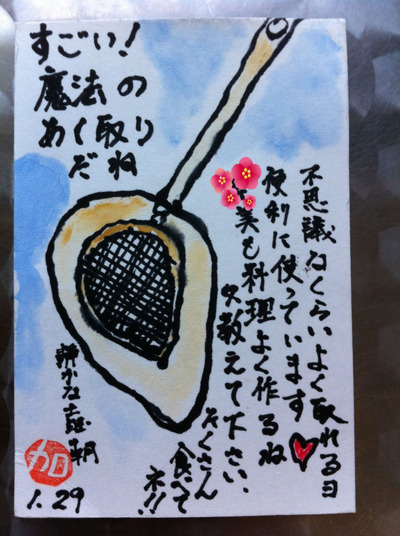 すごい!
魔法の
あく取り
だね
不思議なくらいよく取れるヨ
便利に使っています
美も料理よく作るね
又教えて下さい、
たくさん
食べて
ネ!!
静かな
加
1.29